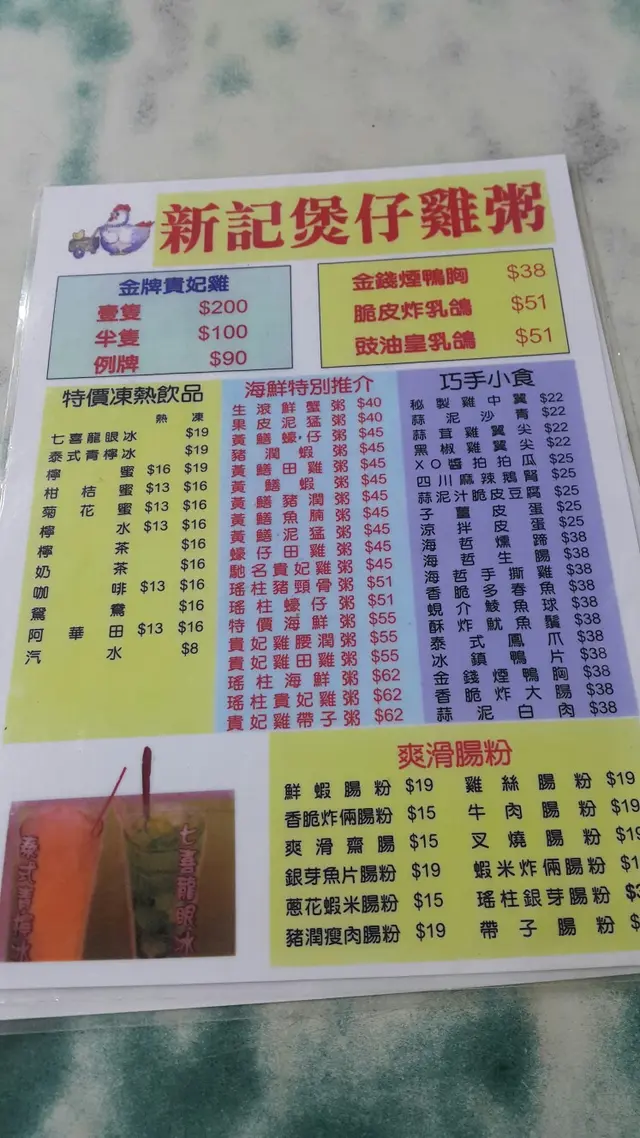 新記煲仔雞粥
金牌貴妃雞
壹隻 $200
半隻 $100
例牌 $90
金錢煙鴨胸 $38
脆皮炸乳鴿 $51
豉油皇乳鴿 $51
特價凍熱飲品
熱 凍
七喜龍眼冰 $19
泰式青檸冰 $19
檸蜜 $16 $19
柑桔蜜 $13 $16
菊花蜜 $13 $16
檸水 $13 $16
檸茶 $16
奶茶 $16
咖啡 $13 $16
鴛鴦 $16
阿華田 $13 $16
汽水 $8
海鮮特別推介
生滾鮮蟹粥 $40
果皮泥猛粥 $40
黃鱔蠔仔粥 $45
豬潤蝦粥 $45
黃鱔田雞粥 $45
黃鱔蝦粥 $45
黃鱔豬潤粥 $45
黃鱔魚腩粥 $45
黃鱔泥猛粥 $45
蠔仔田雞粥 $45
馳名貴妃雞粥 $45
瑤柱豬頸骨粥 $51
瑤柱蠔仔粥 $51
特價海鮮粥 $55
貴妃雞腰潤粥 $55
貴妃雞田雞粥 $55
瑤柱海鮮粥 $62
瑤柱貴妃雞粥 $62
貴妃雞帶子粥 $62
巧手小食
秘製雞中翼 $22
蒜泥沙青 $22
蒜茸雞翼尖 $22
黑椒雞翼尖 $22
XO醬拍拍瓜 $25
四川麻辣鵝腎 $25
蒜泥汁脆皮豆腐 $25
子薑皮蛋 $25
涼拌皮蛋 $25
海哲燻蹄 $38
海哲生腸 $38
海哲手撕雞 $38
香脆多春魚 $38
蜆介鯪魚球 $38
酥炸魷魚鬚 $38
泰式鳳爪 $38
冰鎮鴨片 $38
金錢煙鴨胸 $38
香脆炸大腸 $38
蒜泥白肉 $38
爽滑腸粉
鮮蝦腸粉 $19
香脆炸倆腸粉 $15
爽滑齋腸 $15
銀芽魚片腸粉 $19
蔥花蝦米腸粉 $15
豬潤瘦肉腸粉 $19
雞絲腸粉 $19
牛肉腸粉 $19
叉燒腸粉 $19
蝦米炸倆腸粉
瑤柱銀芽腸粉
帶子腸粉
泰式青檸冰
七喜龍眼冰